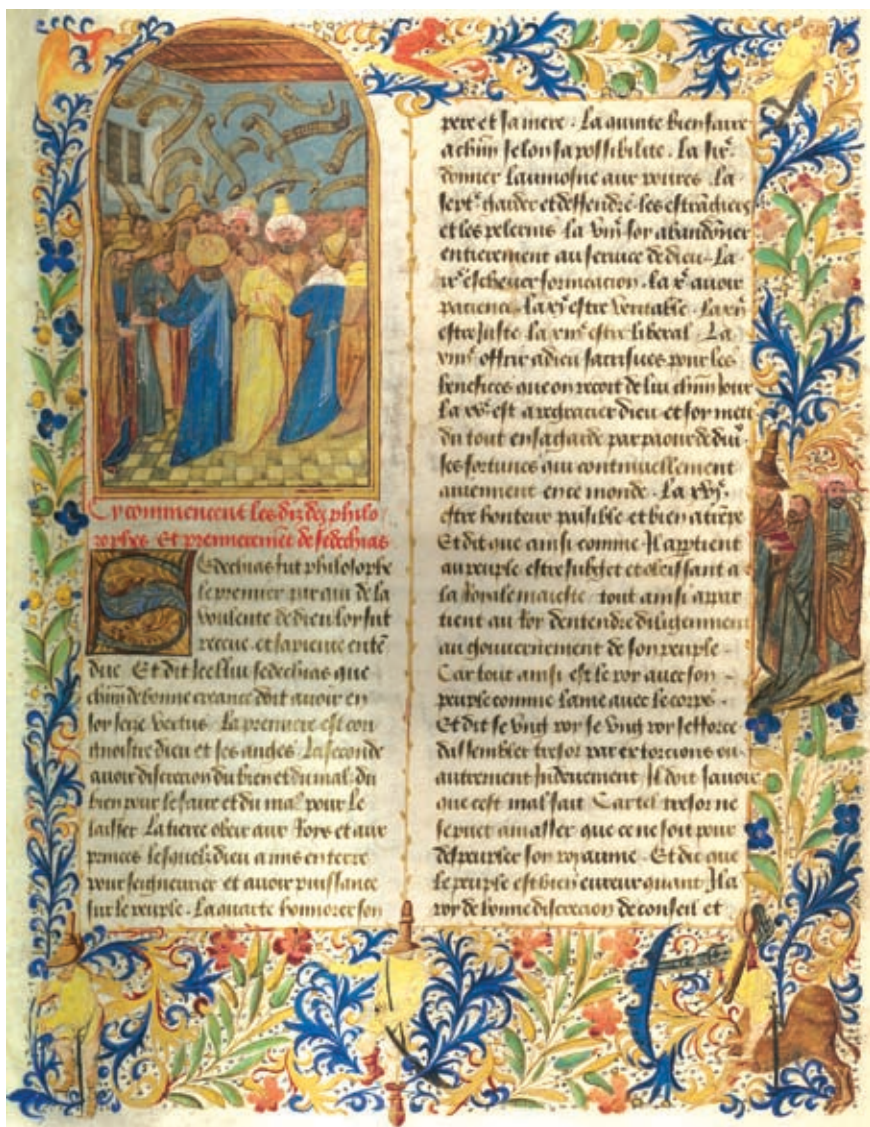 Cy commencent les diz des philo
sophes Et premierem̃et de sedechias
Sedechias fut philosophe
le premier par qui de la
voulente de dieu loy fut
receue et sapience entẽ
due Et dit Icellui sedechias que
chũn de bonne creance doit avoir en
soy seize vertus La premiere est con
gnoistre dieu et ses anges La seconde
avoir discrecion du bien et du mal du
bien pour le faire et du mal pour le
laisser La tierce obeir aux Roys et aux
princes lesquelz dieu a mis en terre
pour seigneurier et avoir puissance
sur le peuple La quarte honnorer son
pere et sa mere La quinte bien faire
a chũn selon sa possibilite La vi.ᵉ
donner laumosne aux povres La
sept.ᵉ garder et deffendre les estrãgiers
et les pelerins la viii.ᵉ soy abandõner
entierement au service de dieu La
ix.ᵉ eschever fornicacion la x.ᵉ avoir
patience La xi.ᵉ estre veritable La xii.ᵉ
estre Juste la xiii.ᵉ estre liberal La
xiiii.ᵉ offrir a dieu sacrifices pour les
benefices que on recoit de lui chũn Jour
la xv.ᵉ est a regracier dieu et soy
du tout en sa garde par
ses fortunes qui continuellement
aviennent en ce monde La xvi.ᵉ
estre honteux paisible et bien
Et dit que ainsi comme Il aptient
au peuple estre subget et obeissant a
la Royale maieste tout ainsi appar
tient au Roy dentendre diligemment
au gouvernement de son peuple
Car tout ainsi est le roy avec son
peuple comme lame avec le corps
Et dit se vng roy se vng roy sefforce
dassembler tresor par extorcions ou
autrement Indeuement Il doit savoir
que cest mal fait Car tel tresor ne
se puet amasser que ce ne soit pour
despeupler son royaume Et dit que
le peuple est bien eureux quant Il a
roy de bonne discrecion de conseil et